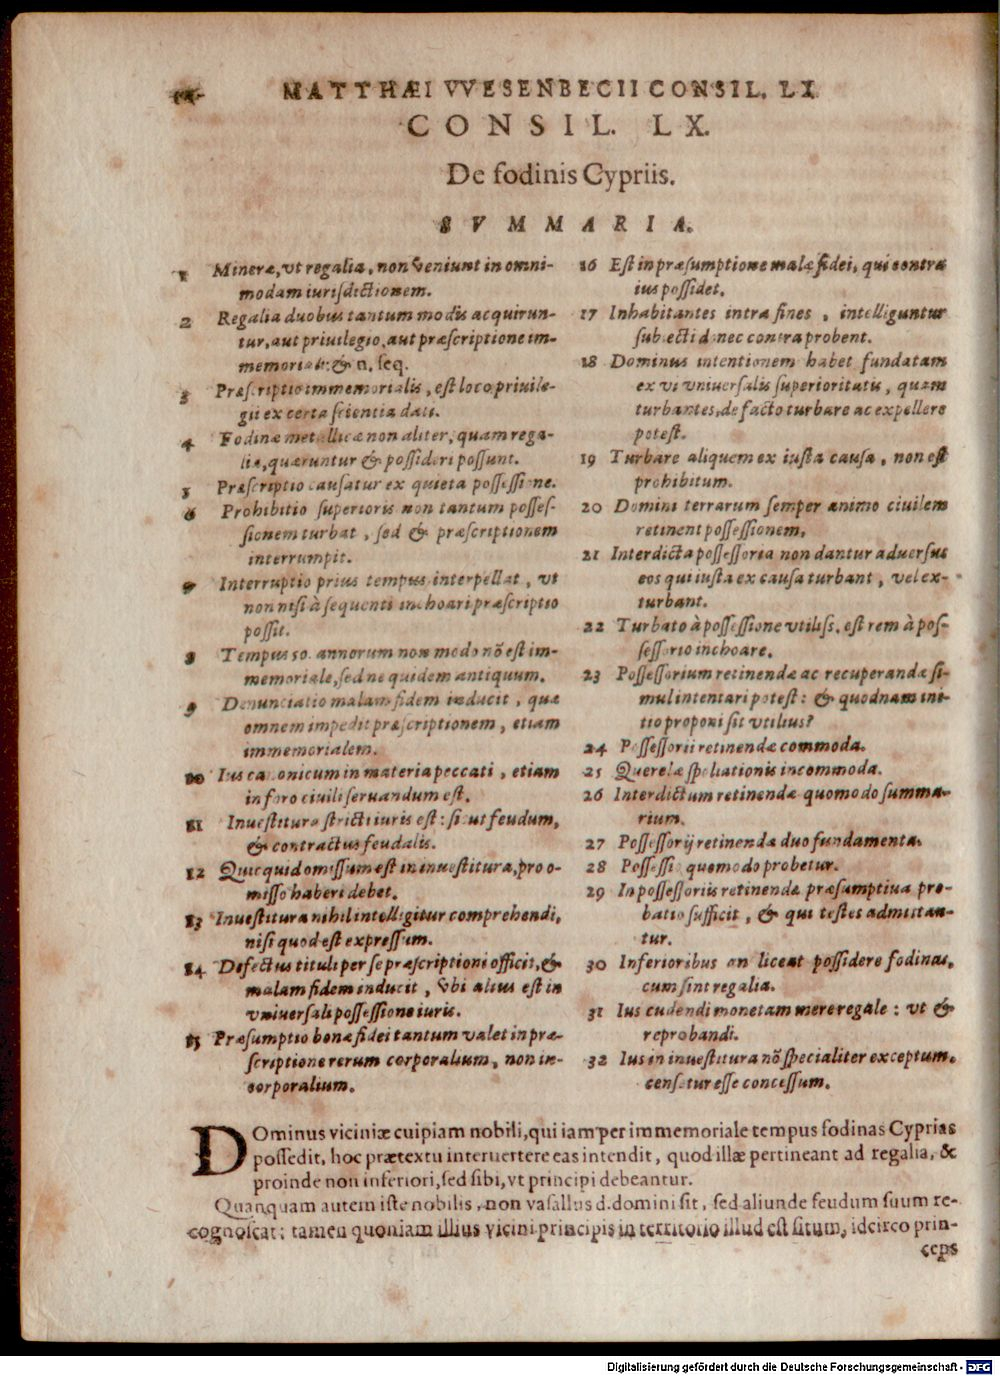 MATTHÆI VVESENBECII CONSIL. LX
CONSIL. LX.
De fodinis Cypriis.
SVMMARIA.
1 Mineræ, vt regalia, non veniunt in omni-
modam iurisdictionem.
2 Regalia duobus tantum modis acquirun-
tur, aut priuilegio, aut præscriptione im-
memoriali: & n. seq.
3 Præscriptio immemorialis, est loco priuile-
gii ex certa scientia dati.
4 Fodinæ metallicæ non aliter, quam rega-
lia, quæruntur & possideri possunt.
5 Præscriptio causatur ex quieta possessione.
6 Prohibitio superioris non tantum posses-
sionem turbat, sed & præscriptionem
interrumpit.
7 Interruptio prius tempus interpellat, vt
non nisi à sequenti inchoari præscriptio
possit.
8 Tempus 50. annorum non modo nõ est im-
memoriale, sed ne quidem antiquum.
9 Denunciatio malam fidem inducit, quæ
omnem impedit præscriptionem, etiam
immemorialem.
10 Ius canonicum in materia peccati, etiam
in foro ciuili seruandum est.
11 Inuestitura stricti iuris est: sicut feudum,
& contractus feudalis.
12 Quicquid omissum est in inuestitura, pro o-
misso haberi debet.
13 Inuestitura nihil intelligitur comprehendi,
nisi quod est expressum.
14 Defectus tituli per se præscriptioni officit, &
malam fidem inducit, vbi alius est in
vniuersali possessione iuris.
15 Præsumptio bonæ fidei tantum valet in præ-
scriptione rerum corporalium, non in-
corporalium.
16 Est in præsumptione malæ fidei, qui contra
ius possidet.
17 Inhabitantes intra fines, intelliguntur
subiecti donec contra probent.
18 Dominus intentionem habet fundatam
ex vi vniuersalis superioritatis, quam
turbantes, de facto turbare ac expellere
potest.
19 Turbare aliquem ex iusta causa, non est
prohibitum.
20 Domini terrarum semper animo ciuilem
retinent possessionem.
21 Interdicta possessoria non dantur aduersus
eos qui iusta ex causa turbant, vel ex-
turbant.
22 Turbato à possessione vtiliss. est rem à pos-
sessorio inchoare.
23 Possessorium retinendæ ac recuperandæ si-
mul intentari potest: & quodnam ini-
tio proponi sit vtilius?
24 Possessorii retinendæ commoda.
25 Querelæ spoliationis incommoda.
26 Interdictum retinendæ quomodo summa-
rium.
27 Possessorij retinendæ duo fundamenta.
28 Possessio quomodo probetur.
29 In possessoriis retinendæ præsumptiua pro-
batio sufficit, & qui testes admittan-
tur.
30 Inferioribus an liceat possidere fodinas,
cum sint regalia.
31 Ius cudendi monetam mere regale: vt &
reprobandi.
32 Ius in inuestitura nõ specialiter exceptum,
censetur esse concessum.
Dominus viciniæ cuipiam nobili, qui iam per immemoriale tempus fodinas Cyprias
possedit, hoc prætextu interuertere eas intendit, quod illæ pertineant ad regalia, &
proinde non inferiori, sed sibi, vt principi debeantur.
Quanquam autem iste nobilis, non vasallus d. domini sit, sed aliunde feudum suum re-
cognoscat: tamen quoniam illius vicini principis in territorio illud est situm, idcirco prin-
ceps
Digitalisierung gefördert durch die Deutsche Forschungsgemeinschaft - DFG